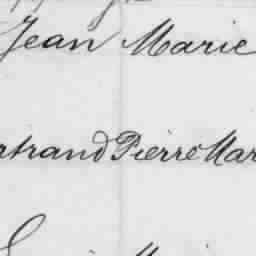 Jean Marie
rtrand Pierre Mar